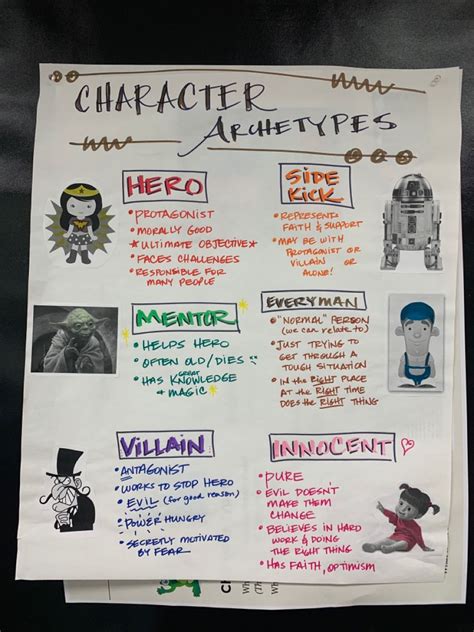 CHARACTER
ARCHETYPES
HERO
• PROTAGONIST
• MORALLY GOOD
★ULTIMATE OBJECTIVE★
• FACES CHALLENGES
• RESPONSIBLE FOR
MANY PEOPLE
SIDE
KICK
• REPRESENTS
FAITH & SUPPORT
• MAY BE WITH
PROTAGONIST OR
VILLAIN OR
ALONE!
MENTOR
• HELPS HERO
• OFTEN OLD/DIES
• HAS GREAT KNOWLEDGE
+ MAGIC
EVERYMAN
• "NORMAL" PERSON
(we can relate to)
• JUST TRYING TO
GET THROUGH A
TOUGH SITUATION
• IN the RIGHT PLACE
AT the RIGHT TIME
DOES the RIGHT THING
VILLAIN
• ANTAGONIST
• WORKS TO STOP HERO
• EVIL (for good reason)
• POWER HUNGRY
• SECRETLY MOTIVATED
BY FEAR
INNOCENT
• PURE
• EVIL DOESN'T
MAKE THEM
CHANGE
• BELIEVES IN HARD
WORK & DOING
THE RIGHT THING
• HAS FAITH, OPTIMISM